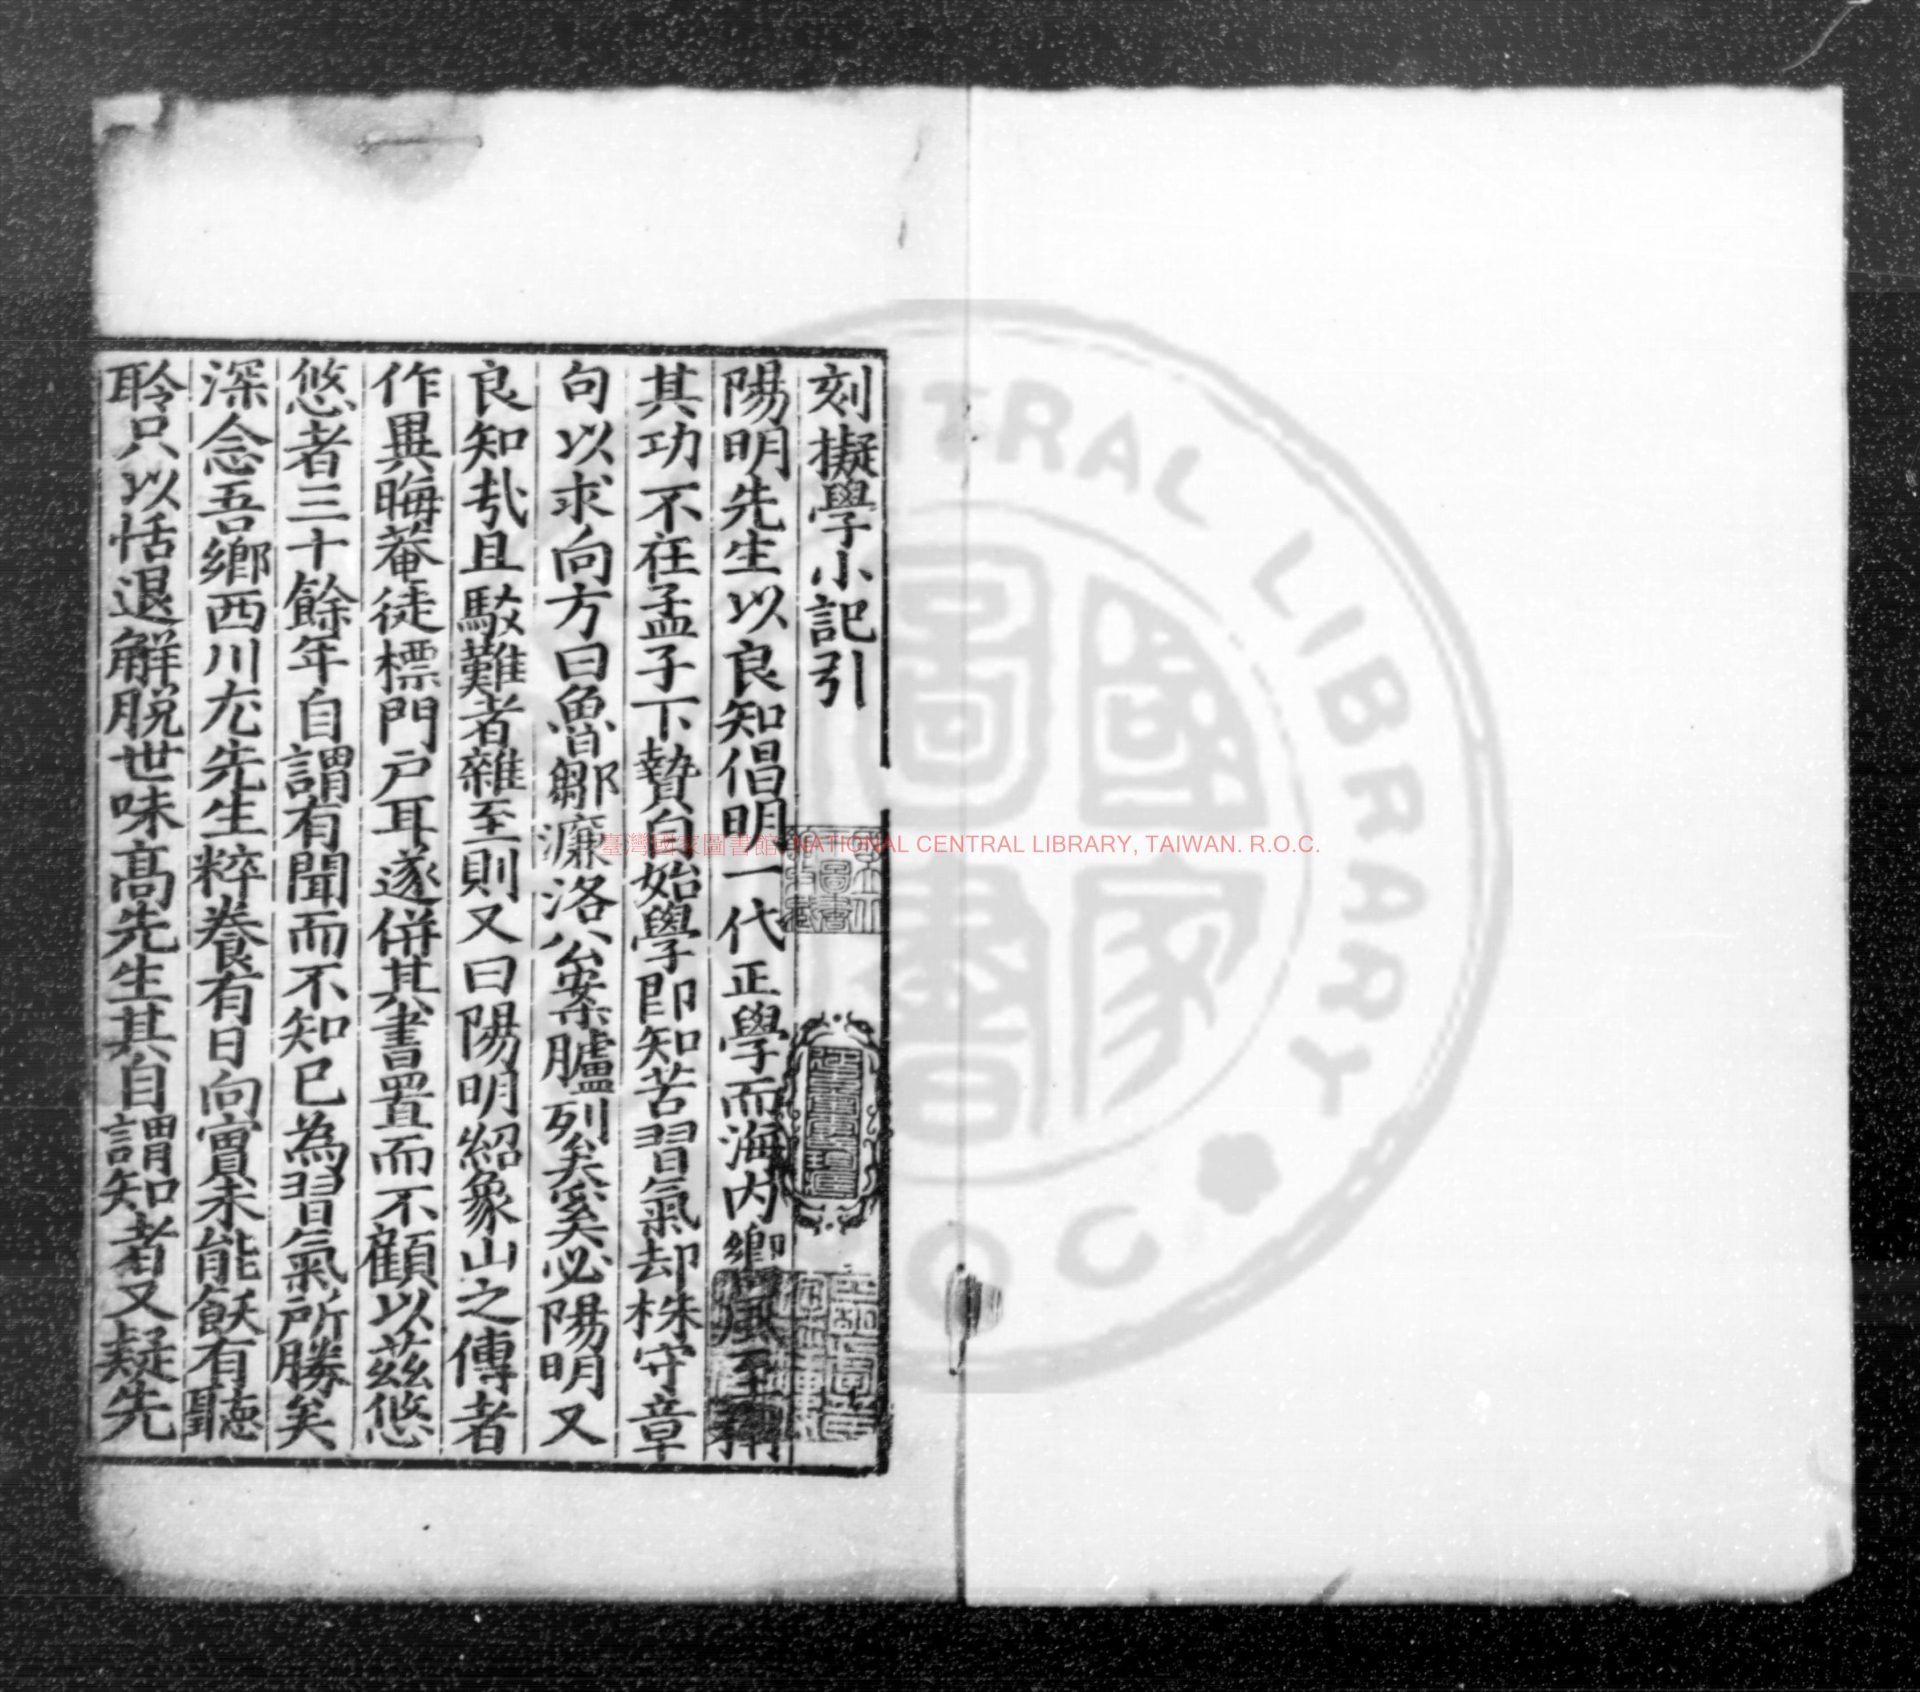 刻擬學小記引
陽明先生以良知倡明一代正學而海内鄉風至稱
其功不在孟子下贄自始學即知苦習氣却株守章
句以求向方曰魯鄒濂洛公案臚列矣奚必陽明又
良知㢤且駁難者雜至則又曰陽明紹象山之傳者
作異晦菴徒標門戸耳遂併其書置而不顧以茲悠
悠者三十餘年自謂有聞而不知已為習氣所勝矣
深念吾鄉西川尤先生粹養有日向實未能飫有聽
聆只以恬退解脱世味高先生其自謂知者又疑先
臺灣國家圖書館, NATIONAL CENTRAL LIBRARY, TAIWAN. R.O.C.
國家圖書
CENTRAL LIBRARY